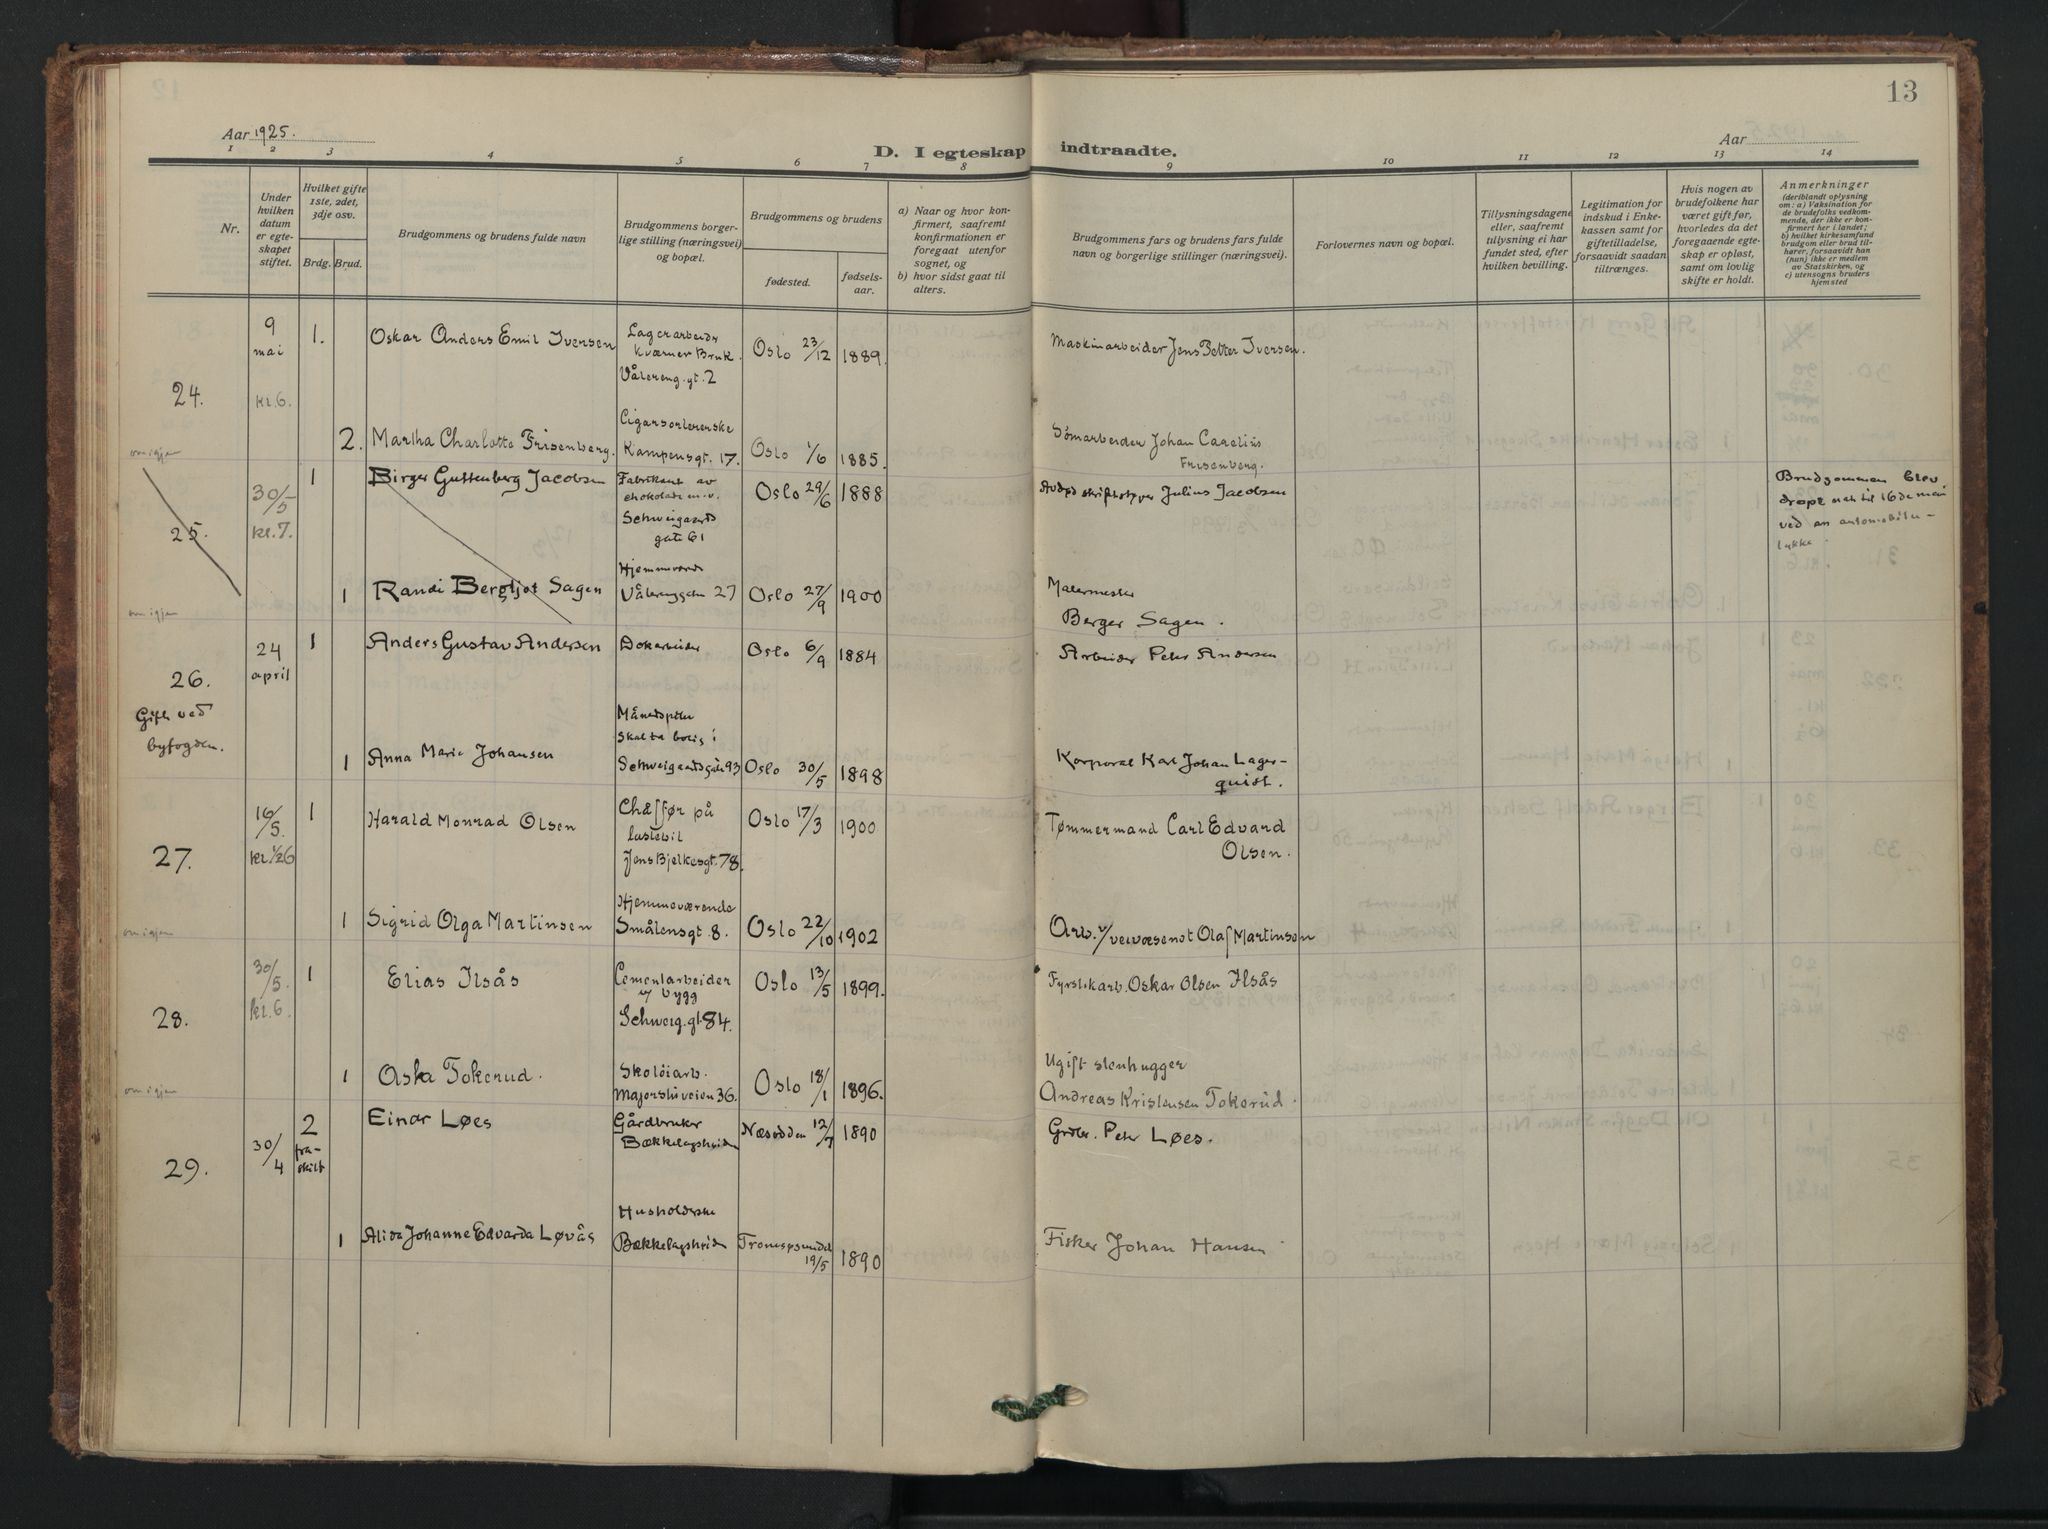 13
Aar 1925.
Aar
D. I egteskap indtraadte.
1 2 3 4 5 6 7 8 9 10 11 12 13 14
Nr.
Under hvilken datum er egteskapet stiftet.
Hvilket gifte 1ste, 2det, 3dje osv.
Brdg. Brud.
Brudgommens og brudens fulde navn
Brudgommens borgerlige stilling (næringsvei) og bopæl.
Brudgommens og brudens
fødested.
fødselsaar.
a) Naar og hvor konfirmert, saafremt konfirmationen er foregaat utenfor sognet, og
b) hvor sidst gaat til alters.
Brudgommens fars og brudens fars fulde navn og borgerlige stillinger (næringsvei).
Forlovernes navn og bopæl.
Tillysningsdagene eller, saafremt tillysning ei har fundet sted, efter hvilken bevilling.
Legitimation for indskud i Enkekassen samt for giftetilladelse, forsaavidt saadan tiltrænges.
Hvis nogen av brudefolkene har været gift før, hvorledes da det foregaaende egteskap er opløst, samt om lovlig skifte er holdt.
Anmerkninger
(deriblandt oplysning om: a) Vaksination for de brudefolks vedkommende, der ikke er konfirmert her i landet; b) hvilket kirkesamfund brudgom eller brud tilhører, forsaavidt han (hun) ikke er medlem av Statskirken, og c) utensogns bruders hjemsted
24.
9 mai kl. 6.
1.
Oskar Anders Emil Iversen
Lagerarbeider
Kværner Bruk.
Vålereng.gt. 2
Oslo 23/12 1889.
Maskinarbeider Jens Petter Iversen.
2.
Martha Charlotte Frisenberg.
Cigarsortererske
Kampensgt. 17.
Oslo 1/6 1885.
Sömarbeider Johan Carelius
Frisenberg.
om igjen
25.
30/5 kl. 7.
1
Birger Guttenberg Jacobsen
Fabrikant av
chokolade m.v.
Schweigaards
gate 61
Oslo 29/6 1888
Avdød skriftstøper Julius Jacobsen
Brudgommen blev
dræpt natt til 16de mai
ved en automobilu-
lykke.
1
Randi Bergljot Sagen
Hjemmeværende
Vålerenggaten 27
Oslo 27/9 1900
Malermester
Berger Sagen.
om igjen
26.
Gift ved
byfogden.
24 april
1
Anders Gustav Andersen
Dokarbeider
Oslo 6/9 1884
Arbeider Peter Andersen
1
Anna Marie Johansen
skal ta bolig i
Schweigaardsgate 93
Oslo 30/5 1898
Korporal Karl Johan Lager-
quist.
27.
16/5. kl. 1/2 6
1
Harald Monrad Olsen
Chåffør på
lastebil
Jens Bjelkesgt. 78.
Oslo 17/3 1900
Tømmermand Carl Edvard
Olsen.
1
Sigrid Olga Martinsen
Hjemmeværende
Smålensgt. 8.
Oslo 22/10 1902
Arb. v/ veivæsenet Olaf Martinsen
om igjen
28.
30/5. kl. 6.
1
Elias Ilsås
Cementarbeider
v/ bygg
Schweig.gt. 84.
Oslo 13/5 1899.
Fyrstikarb. Oskar Olsen Ilsås
1
Aska Tokerud.
Skotöiarb.
Majorstuveien 36.
Oslo 18/1 1896.
Ugift stenhugger
Andreas Kristensen Tokerud.
om igjen
29.
30/4
2
fra-
skilt
Einar Løes
Gårdbruker
Bækkelagshøiden
Næsodden 12/7 1890
Grdbr. Peter Løes.
1
Alida Johanne Edvarda Løvås
Husholderske
Bækkelagshøiden
Tromsøsundet
19/5 1890
Fisker Johan Hansen